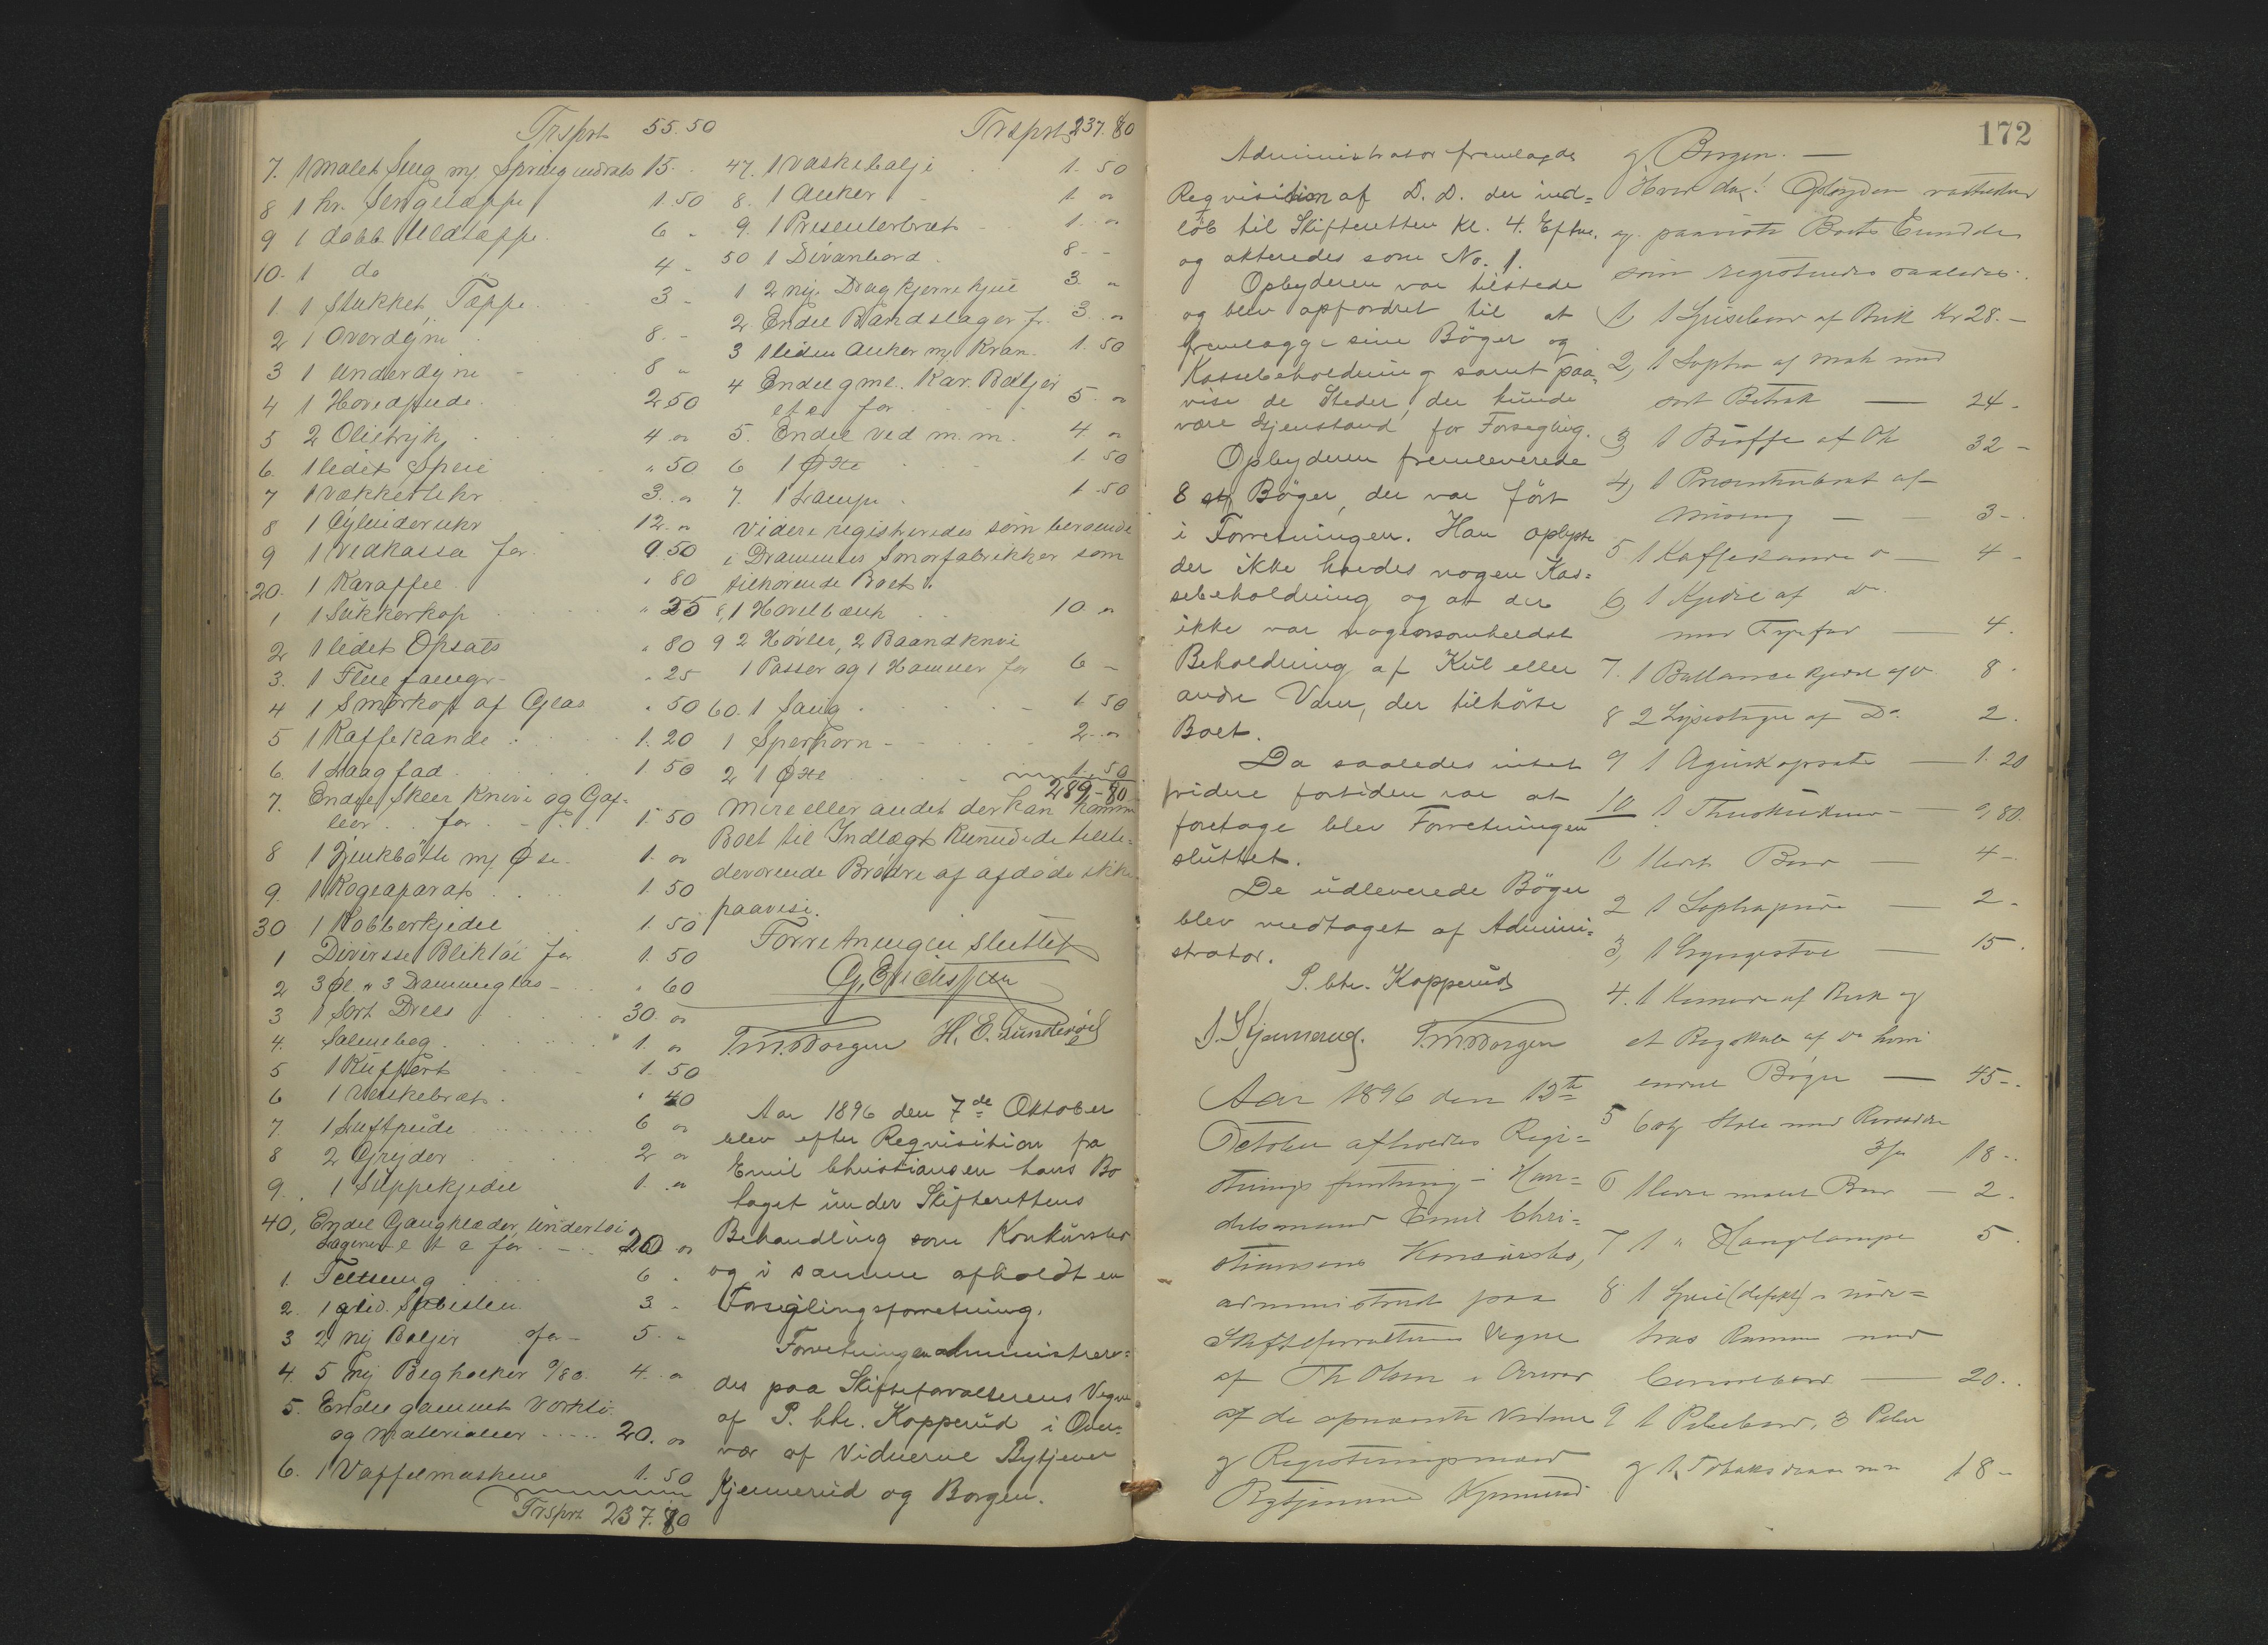 Trsprt 55.50
7. 1 malet Seng m/ Springmadrats 15. "
8 1 hv. Sengetæppe 1.50
9 1 dobb. Uldtæppe. 6 "
10. 1 do 4 "
1 1 Stukket Tæppe 3 "
2 1 Overdyne 8. "
3 1 Underdyne 8 "
4 1 Hovedpude. 2.50
5 2 Olietryk 4 "
6. 1 lidet Speil " 50
7 1 Vækkeruhr 3. "
8 1 Cylinderuhr 12. "
9 1 Vedkasse for 9.50
20. 1 Karaffel " 80
1 1 Sukkerkop " 25
2 1 lidet Opsats " 80
3. 1 Fluefanger " 25
4 1 Smørkop af Glas " 50
5 1 Kaffekande 1.20
6. 1 Laagfad 1.50
7. Endel Skeer Knive og Gaf-
ler for 1.50
8 1 Zinkbøtte m/ Øse 1. "
9. 1 Kogeaparat 1.50
30 1 Kobberkjedel 1.50
1 Diverse Bliktøi for 1.50
2 3 Øl " 3 Dramglas " 60
3 1 Sort Dress 30. "
4. Salmebog 1. "
5 1 Kuffert 1.50
6 1 Vaskebræt " 40
7 1 Luftpude 6 "
8 2 Gryder 2 "
9. 1 Suppekjedel 1. "
40, Endel Gangklæder, Undertøi
Lagener e t c for 20 "
1. Feltseng 6 "
2. 1 glid. 3 "
3 2 ny Baljer for 5. "
4. 5 ny Begholker 9/80 4. "
5. Endel gammelt Værktøi
og Materialier 20. "
6. 1 Vaffelmaskine 1.50
Trsprt 237.80
Trsprt 237.80
47. 1 Vaskebalje 1.50
8. 1 Anker 1. "
9. 1 Presenterbræt 1. "
50 1 Divanbord 8. "
1 2 nye Dragkjerrehjul 3. "
2 Endel Bandstager for 3. "
3 1 liden Anker m/ Kran 1.50
4 Endel gml. Kar. Baljer
etc for 5. "
5. Endel Ved m.m. 4 "
6 1 Øxe 1.50
7. 1 Lampe 1.50
Videre registreredes som beroende
i Drammens Smørfabrikker som
tilhørende Boet:
8, 1 Høvelbænk 10. "
9 2 Høvler, 2 Baandknive
1 Passer og 1 Hammer for 6 "
60. 1 Saug 1.50
1 Sperhorn 2. "
2 1 Øxe 1.50
289.80
Mere eller andet der kan komme
Boet til Indtægt kunde de tilste-
deværende Brødre af afdøde ikke
paavise.
Forretningen sluttet
G. Erichssen
T. M. Borgen H. E.
Aar 1896 den 7de Oktober
blev efter Reqvisition fra
Emil Christiansen hans Bo
taget under Skifterettens
Behandling som Konkursbo
og i samme afholdt en
Forseglingsforretning.
Forretningen administrere-
des paa Skifteforvalterens Vegne
af P. Chr. Kopperud i Over-
vær af Vidnerne Bytjener
Kjennerud og Borgen.
172
Administrator fremlagde
Reqvisition af D. D. der ind-
løb til Skifteretten Kl. 4. Efterm.
og akteredes som No. 1.
Opbyderen var tilstede
og blev opfordret til at
fremlægge sine Bøger og
Kassebeholdning samt paa-
vise de Steder, der kunde
være Gjenstand for Forsegling.
Opbyderen fremleverede
8 stk Bøger, der var ført
i Forretningen. Han oplyste
der ikke havdes nogen Kas-
sebeholdning og at der
ikke var nogensomhelst
Beholdning af Kul eller
andre Varer, der tilhørte
Boet.
Da saaledes intet
videre fortiden var at
foretage blev Forretningen
sluttet.
De udleverede Bøger
blev modtaget af Admini-
strator.
P. Chr. Kopperud
J. Kjennerud. T. M. Borgen
Aar 1896 den 13te
October afholdtes Regi-
strerings forretning i Han-
delsmand Emil Chri-
stiansens Konkursbo,
administreret paa
Skifteforvalterens Vegne
af Th Olsen i Overvær
af de opnævnte Vidner
og Registreringsmænd
Bytjenerne Kjennerud
og Borgen. —
Hvorda! Opbyderen var tilstede
og paaviste Boets Eiendele
som registreredes saaledes:
1, 1 Spisebord af Birk Kr 28. –
2, 1 Sopha af mah med
sort Betræk — 24 –
3, 1 Buffe af Ek 32 –
4, 1 Presenterbræt af
Messing — 3 –
5 1 Kaffekande " — 4 –
6, 1 Kjedel af do
med Fyrfad — 4.
7. 1 Ballance kjedel af do 8.
8 2 Lysestager af Do 2.
9 1 Agurkopsats — 1.20
10 1 — ",80.
1, 1 lidet Bord — 4 –
2 1 Sophapude — 2 –
3, 1 Gyngestol — 15.
4. 1 Komode af Birk og
et Bogskab af do hvori
endel Bøger — 45 –.
5 6 stk Stole med Rørsæder
3/ 18 –.
6 1 lidet malet Bord — 2.
7 1 " Hænglampe 5.
8 1 Speil (defekt) i nøde-
træs Ramme med
Consolbord — 20.
9 1 Pibebord, 3 Piber
og 1 Tobaksdaase 18 –